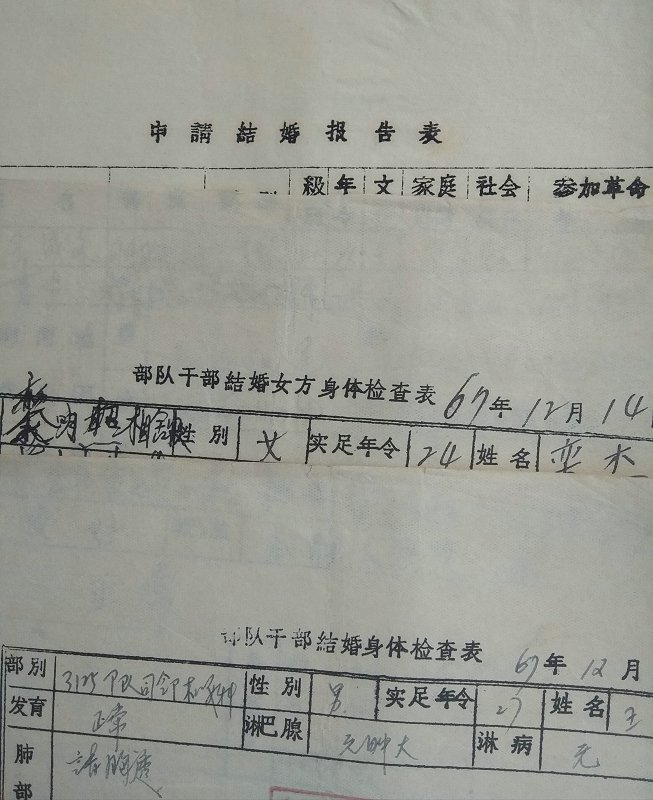 申請結婚报告表
級 年 文 家庭 社会 参加革命
部队干部結婚女方身体检查表 67年12月14
性別 女 实足年令 24 姓名
部队干部結婚身体检查表 67年12月
部別 性別 男 实足年令 27 姓名 王
发育 正常 淋巴腺 无肿大 淋病 无
肺 請胸透
部